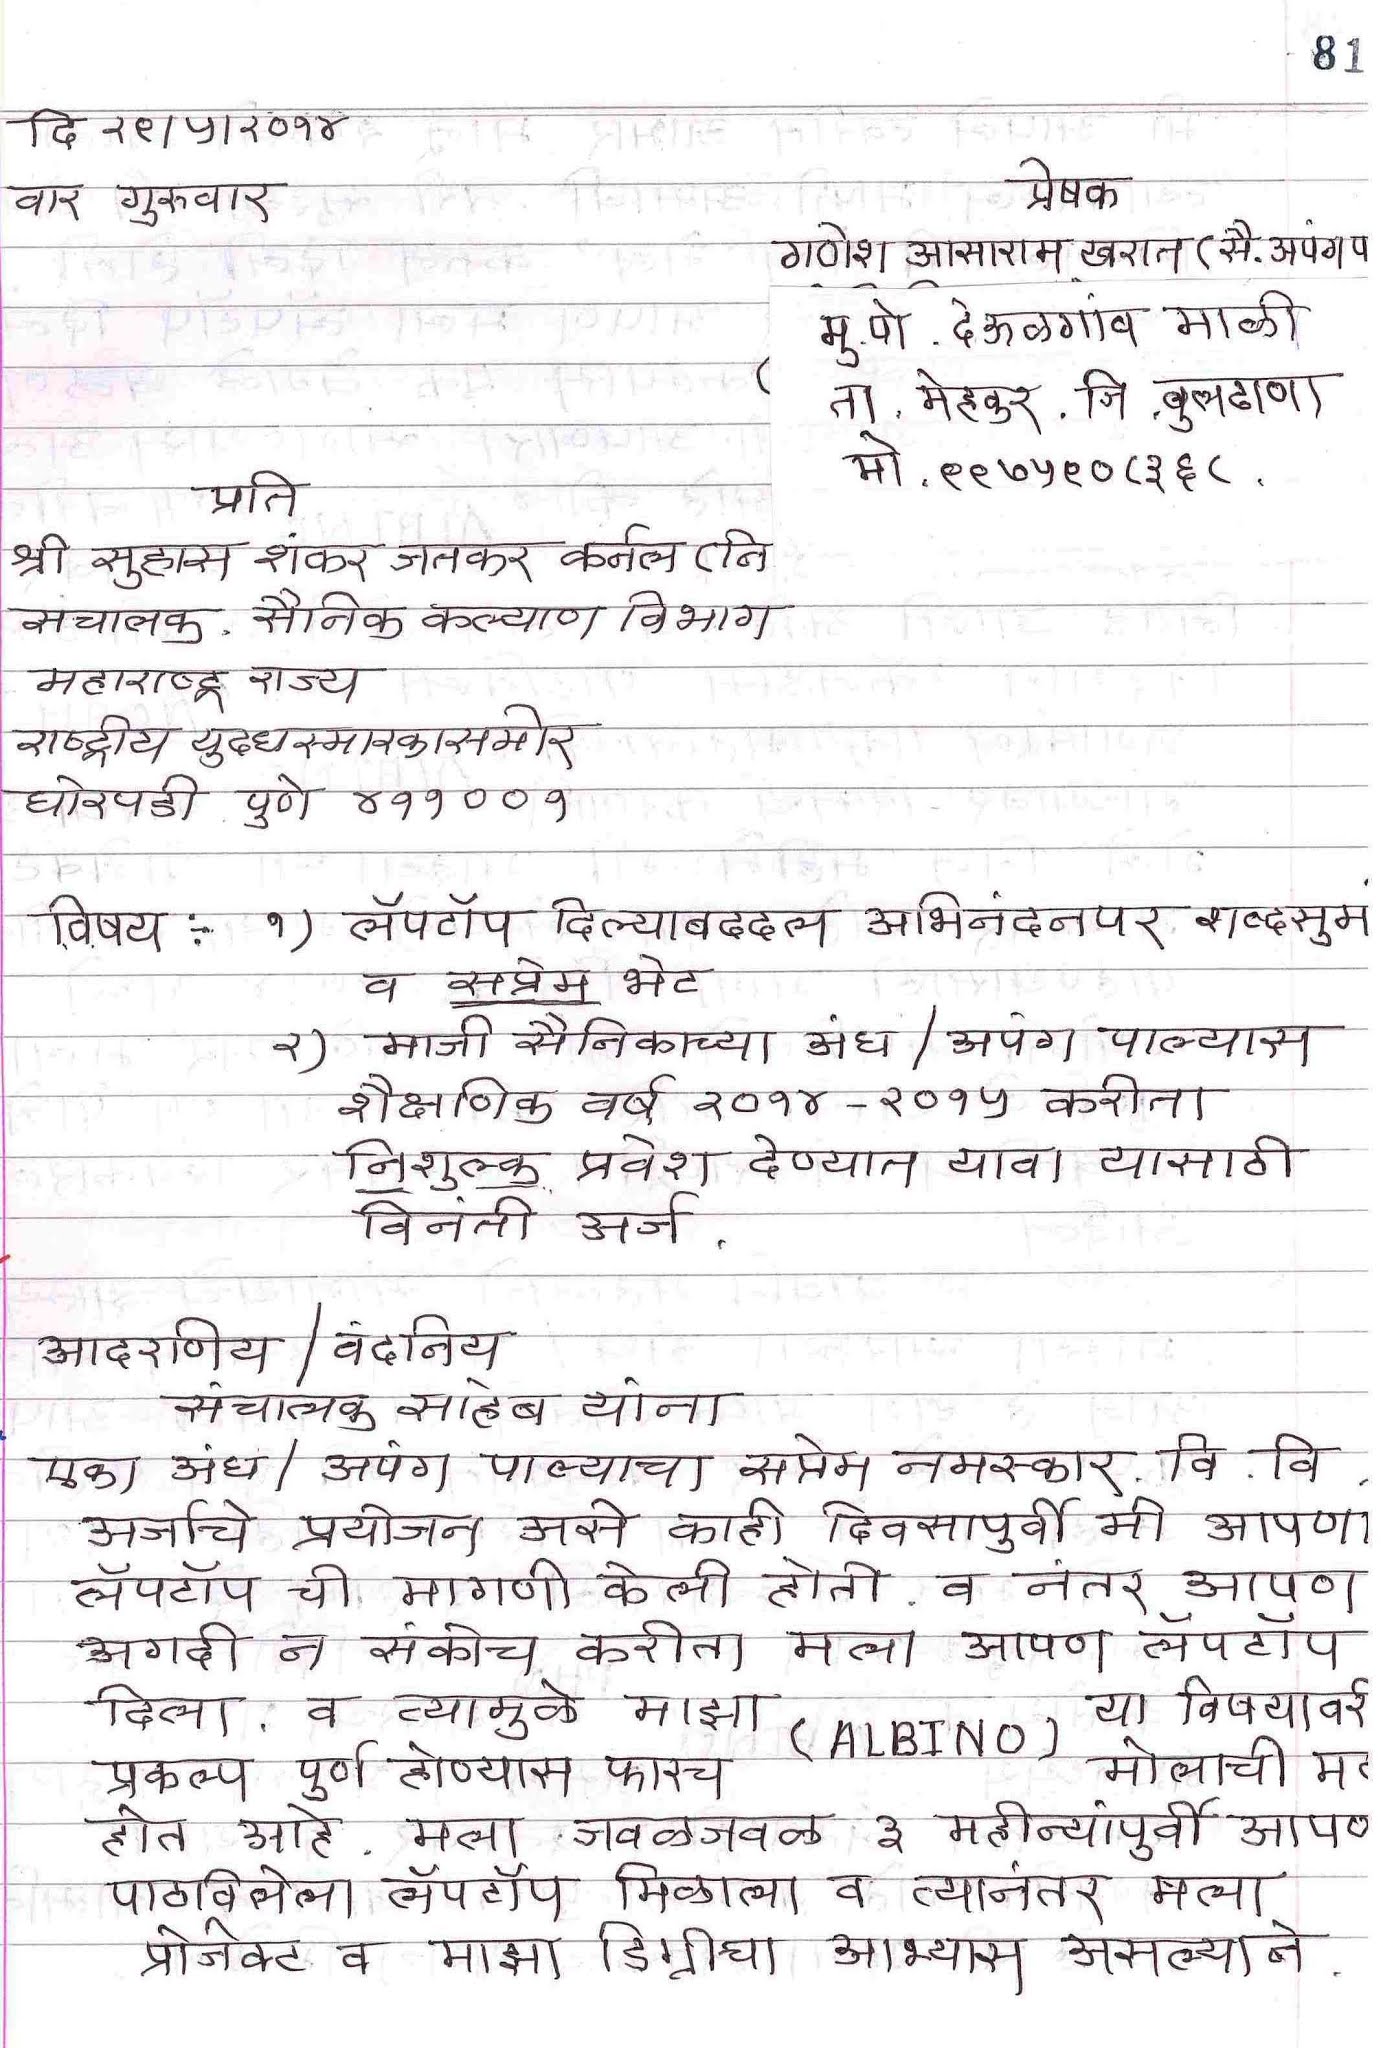 81
दि २९/५/२०१४
वार गुरुवार
प्रेषक
गणेश आसाराम खरात (सै. अपंग प
मु.पो. देऊळगांव माळी
ता. मेहकुर. जि. बुलढाणा
मो. ९९७५९०८३६८.
प्रति
श्री सुहास शंकर जतकर कर्नल (नि
संचालक. सैनिक कल्याण विभाग
महाराष्ट्र राज्य
राष्ट्रीय युद्धस्मारकासमोर
घोरपडी पुणे ४११००१
विषय :- १) लॅपटॉप दिल्याबददल अभिनंदनपर शब्दसुमं
व सप्रेम भेट
२) माजी सैनिकाच्या अंध / अपंग पाल्यास
शैक्षणिक वर्ष २०१४-२०१५ करीता
निशुल्क प्रवेश देण्यात यावा यासाठी
विनंती अर्ज.
आदरणिय / वंदनिय
संचालक साहेब यांना
एका अंध / अपंग पाल्याचा सप्रेम नमस्कार. वि. वि.
अर्जाचे प्रयोजन असे काही दिवसापुर्वी मी आपणा
लॅपटॉप ची मागणी केली होती. व नंतर आपण
अगदी न संकोच करीता मला आपण लॅपटॉप
दिला. व त्यामुळे माझा (ALBINO) या विषयावर
प्रकल्प पुर्ण होण्यास फारच मोलाची मद
होत आहे. मला जवळजवळ ३ महीन्यांपुर्वी आपण
पाठविलेला लॅपटॉप मिळाला व त्यानंतर मला
प्रोजेक्ट व माझा डिग्रीचा आभ्यास असल्याने.